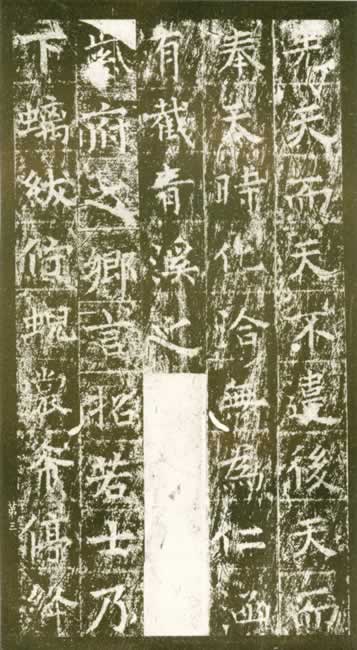 先天而天不違後天而
奉天時化洽無為仁涵
有截青溪之
紫府之鄉言招若士乃
下螭紱俯蜺裳停
第三